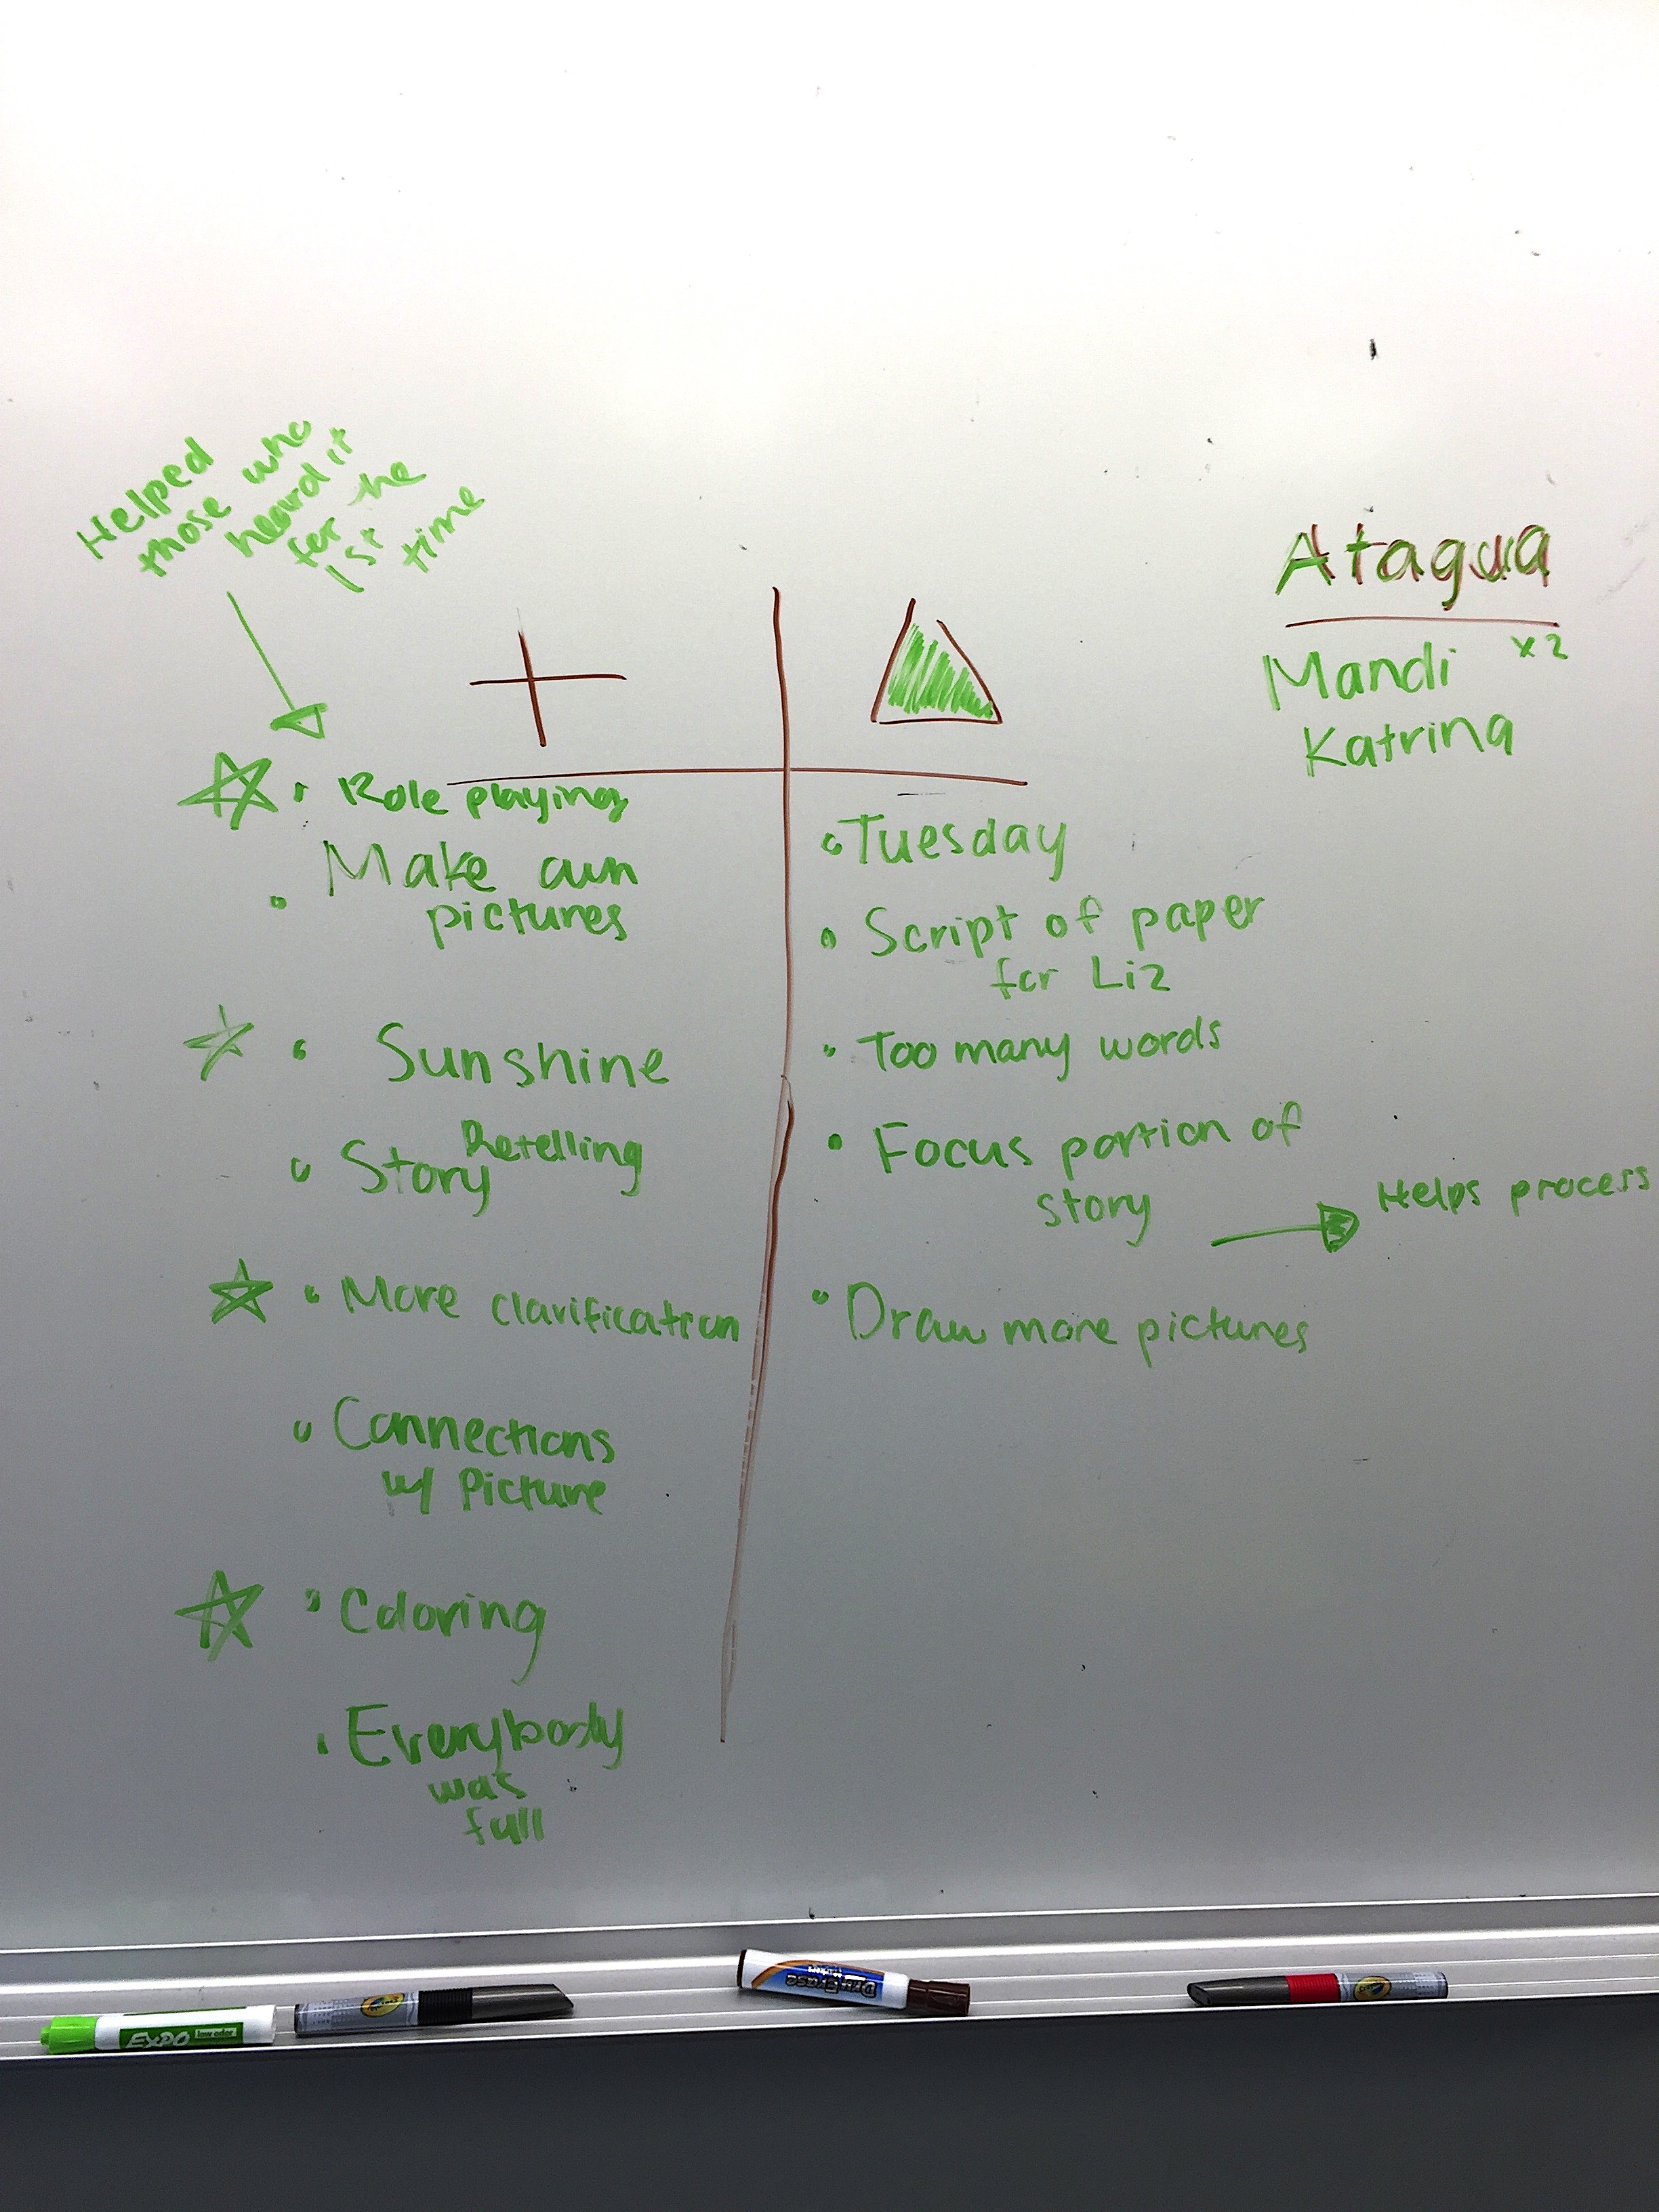 Helped
those who
heard it
for the
1st
time
+
Role playing
Make own
pictures
Sunshine
Story Retelling
More clarification
Connections
w/ Picture
Coloring
Everybody
was
full
Tuesday
Script of paper
for Liz
Too many words
Focus portion of
story
Helps process
Draw more pictures
Atagua
Mandi x2
Katrina
EXPO
low odor
Dry Erase